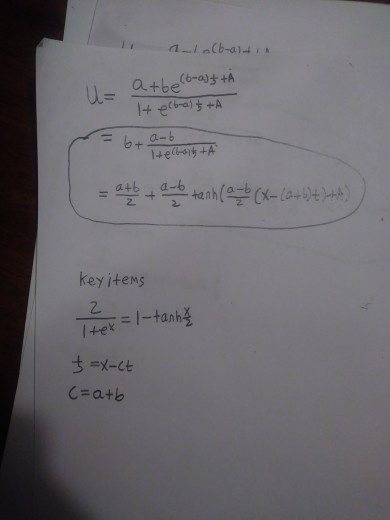 U = \frac{a+be^{(b-a)ξ+A}}{1+e^{(b-a)ξ+A}}
= b + \frac{a-b}{1+e^{(b-a)ξ+A}}
= \frac{a+b}{2} + \frac{a-b}{2} tanh(\frac{a-b}{2}(x-(a+b)t)+A)
key items
\frac{2}{1+e^x} = 1-tanh\frac{x}{2}
ξ = x-ct
C = a+b